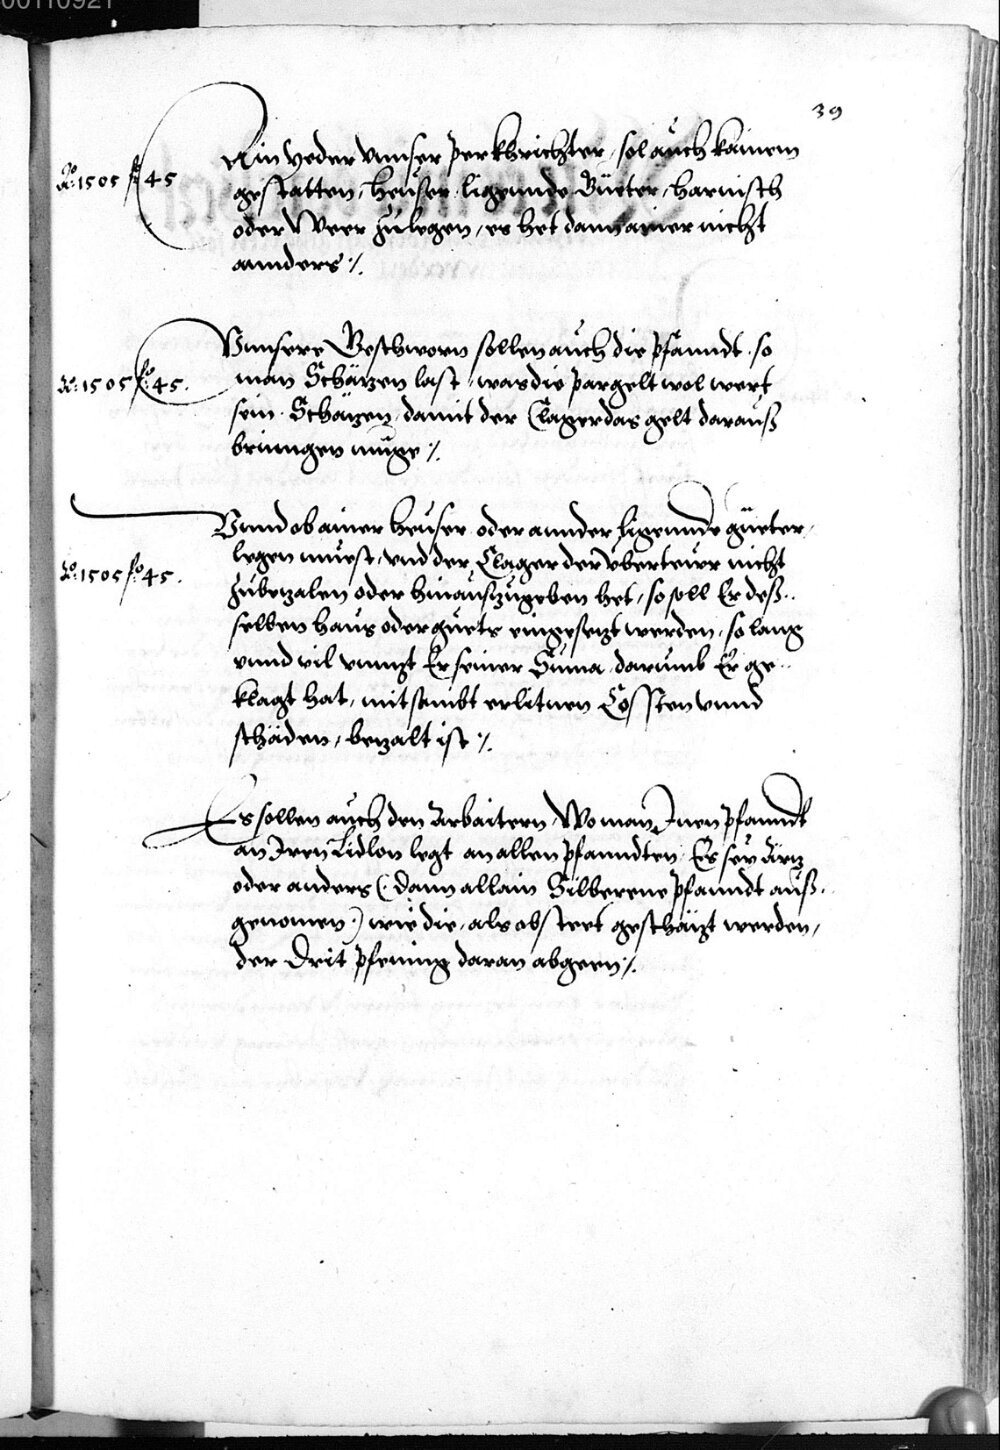 00110921
39
Ain yeder vnnser Perkhrichter, sol auch kainem
Ao. 1505 fo 45
gestatten, heuser ligennde Güeter, harnisch
oder Weer zulegen, er het dann ainer nicht
annders ./.
Vnnsere Geschworn sollen auch die pfanndt so
Ao. 1505 fo. 45.
man Schäzen last, was die pargelt wol wert
sein Schäzen, damit der Clager das gelt darauß
bringen muge ./.
Vnnd ob ainer heuser oder annder ligennde güeter,
legen muest, vnd der Clager der vberteur nicht
Ao. 1505 fo 45.
zubezalen oder hinauszugeben het, so soll Er deß-
selben haus oder guets eingesetzt werden, so lang
vnnd vil vnntzt Er seiner Suma, darumb Er ge-
klagt hat, mitsambt erlitnen Cossten vnnd
schäden, bezalt ist ./.
Es sollen auch den Arbaitern, Wo man Inen pfanndt
an Iren Lidlon legt an allen pfanndten Es sey Ärtz
oder anders (: dann allain Silberene pfanndt auß-
genomen :) wie die, als obsteet geschäzt werden,
der Drit pfening daran abgeen ./.